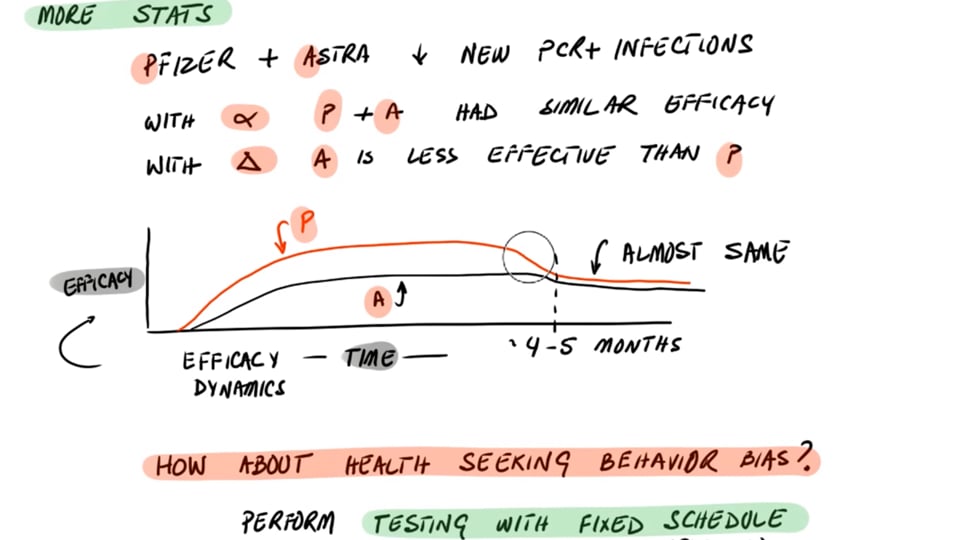 MORE STATS
PFIZER + ASTRA ↓ NEW PCR+ INFECTIONS
WITH α P + A HAD SIMILAR EFFICACY
WITH Δ A IS LESS EFFECTIVE THAN P
P
ALMOST SAME
EFFICACY
A
EFFICACY — TIME — 4-5 MONTHS
DYNAMICS
HOW ABOUT HEALTH SEEKING BEHAVIOR BIAS?
PERFORM TESTING WITH FIXED SCHEDULE